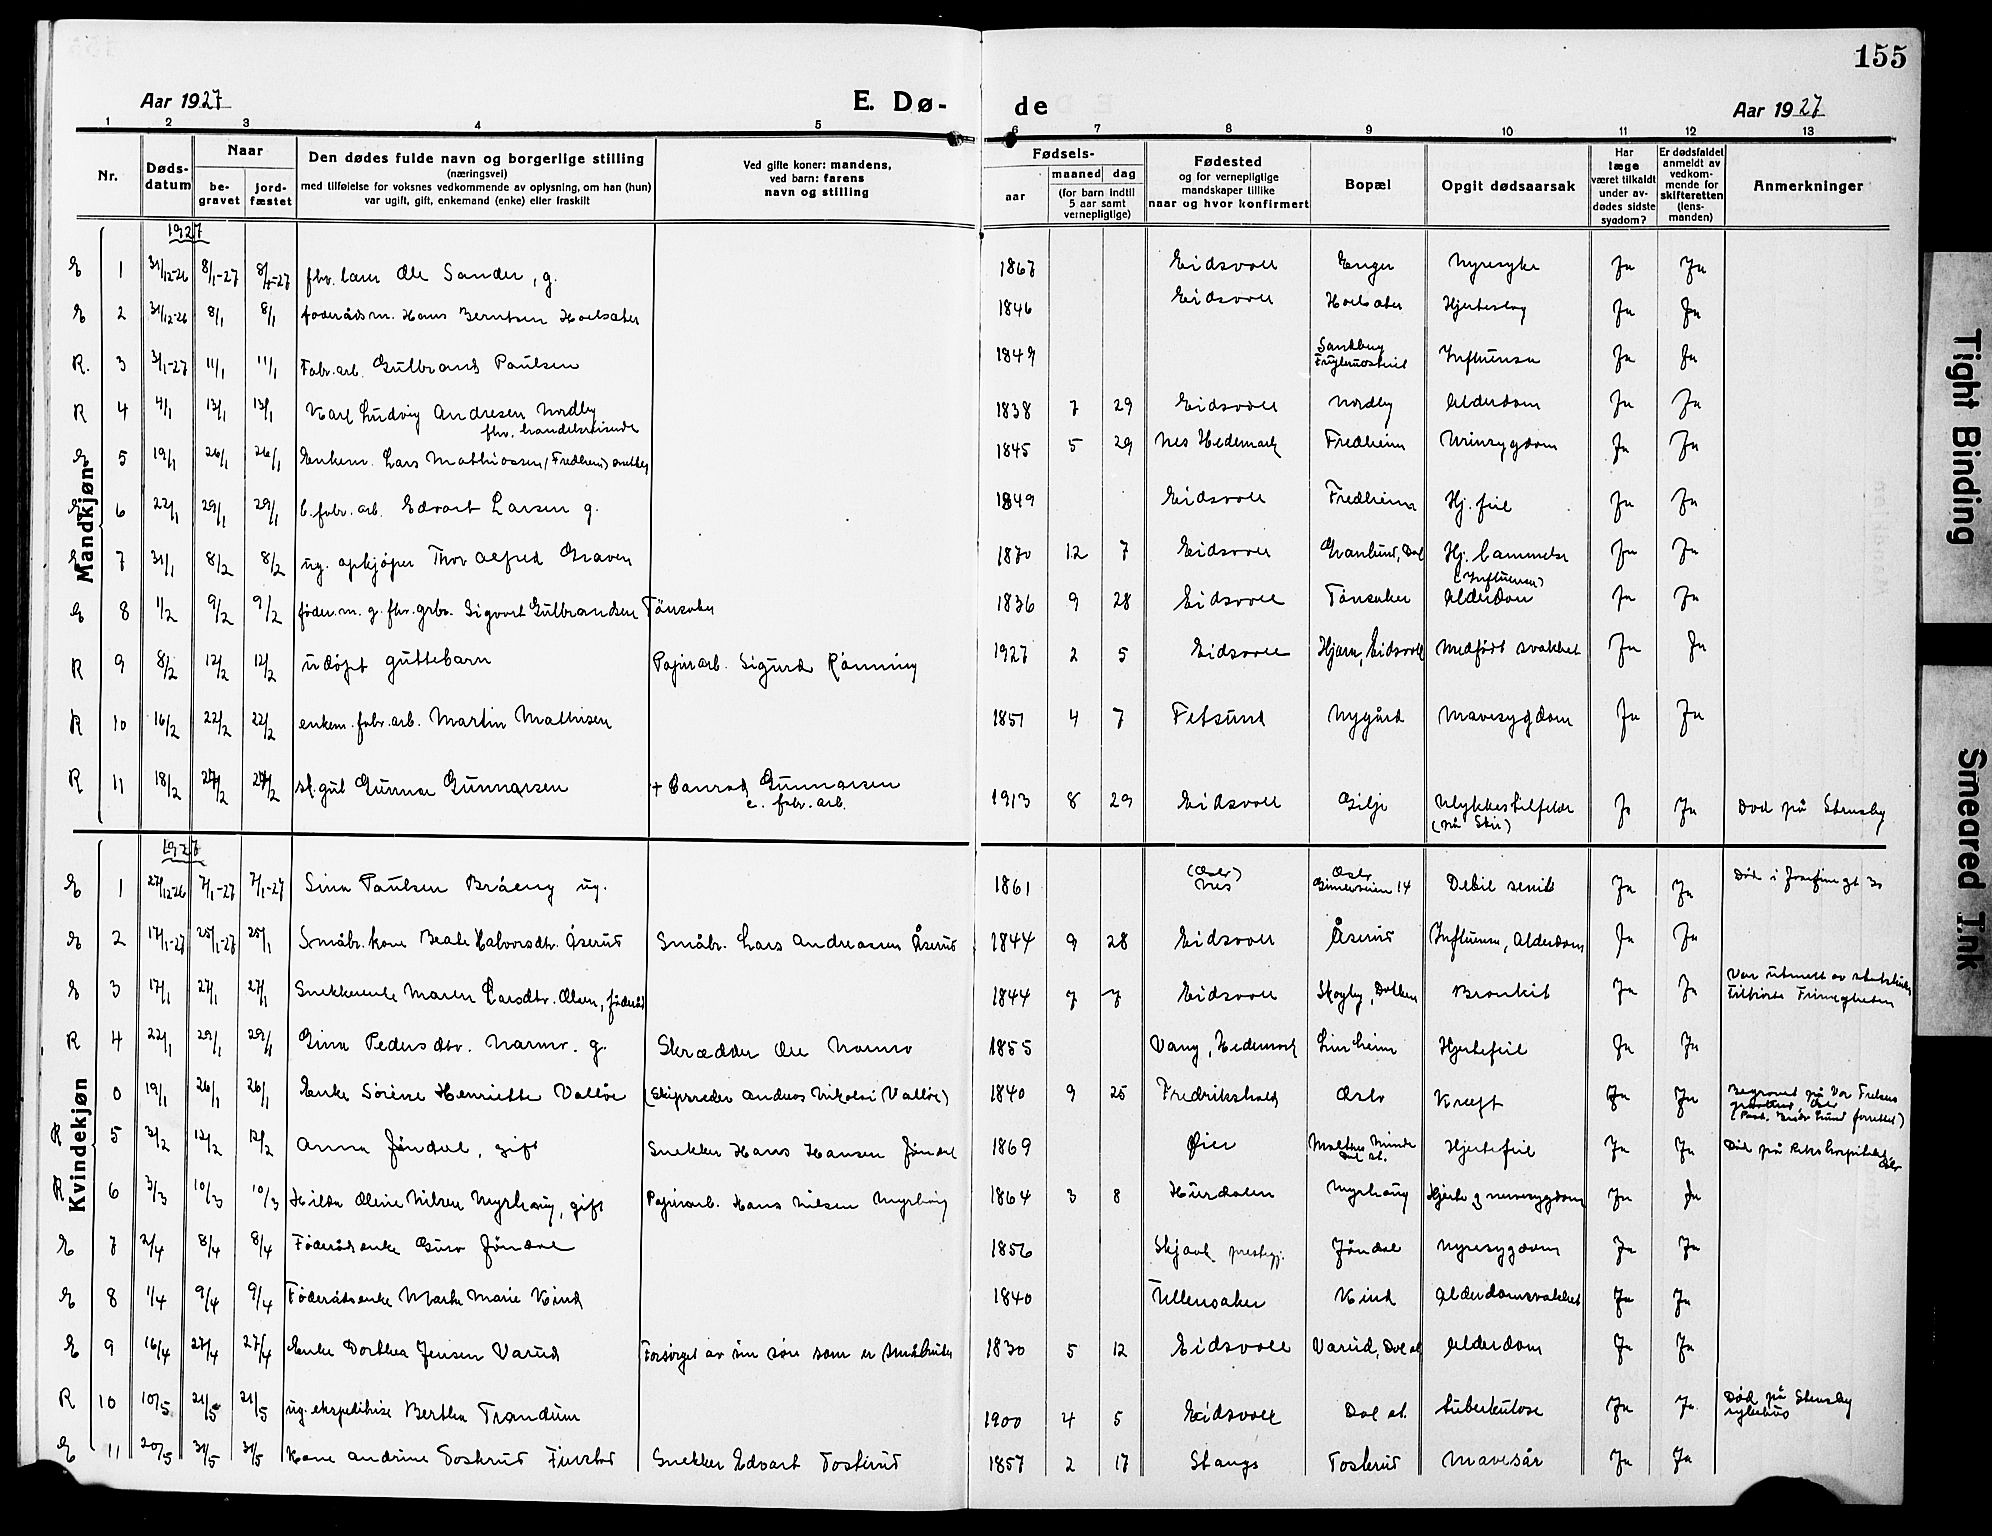 155
Aar 1927
E. Dø-
de
Aar 1927
1 2 3 4 5 6 7 8 9 10 11 12 13
Nr.
Døds-
datum
Naar
be-
gravet
jord-
fæstet
Den dødes fulde navn og borgerlige stilling
(næringsvei)
med tilføielse for voksnes vedkommende av oplysning, om han (hun)
var ugift, gift, enkemand (enke) eller fraskilt
Ved gifte koner: mandens,
ved barn: farens
navn og stilling
Fødsels-
aar
maaned dag
(for barn indtil
5 aar samt
vernepligtige)
Fødested
og for vernepligtige
mandskaper tillike
naar og hvor konfirmert
Bopæl
Opgit dødsaarsak
Har
læge
været tilkaldt
under av-
dødes sidste
sygdom?
Er dødsfaldet
anmeldt av
vedkom-
mende for
skifteretten
(lens-
manden)
Anmerkninger
Mandkjøn
1927
E 1 31/12-26 8/1-27 8/1-27 fhv. lærer Ole Sander, g. 1867 Eidsvoll Enger Nyresyke Ja Ja
E 2 31/12-26 8/1 8/1 føderådsm. Hans Berntsen Hoelsæter 1846 Eidsvoll Hoelsæter Hjerteslag Ja Ja
R. 3 3/1-27 11/1 11/1 Fabr. arb. Gulbrand Paulsen 1849 Sandberg Influensa Ja Ja
R 4 4/1 13/1 13/1 Karl Ludvig Andresen Nordby 1838 7 29 Eidsvoll Nordby Alderdom Ja Ja
fhv. handelsreisende
E 5 19/1 26/1 26/1 Enkem. Lars Mathiassen (Fredheim) 1845 5 29 Nes Hedemark Fredheim Urinsygdom Ja Ja
E 6 22/1 29/1 29/1 f. fabr. arb. Edvart Larsen g. 1849 Eidsvoll Fredheim Hj. feil Ja Ja
E 7 31/1 8/2 8/2 ug. opkjøper Thor Alfred Graven 1870 12 7 Eidsvoll Granlund, Dal Hj. lammelse Ja Ja
(Influensa)
E 8 1/2 9/2 9/2 føder. m. g. fhv. grbr. Sigvart Gulbrandsen Tønsaker 1836 9 28 Eidsvoll Tønsaker Alderdom Ja Ja
R 9 8/2 12/2 12/2 udøpt guttebarn Papirarb. Sigurd Rønning 1927 2 5 Eidsvoll Hjærn, Eidsvoll Medfødt svakhet Ja Ja
R 10 16/2 22/2 22/2 enkem. fabr. arb. Martin Mathisen 1851 4 7 Fetsund Nygård Mavesygdom Ja Ja
R 11 18/2 27/2 27/2 sk. gut Gunnar Gunnarsen + Conrad Gunnarsen 1913 8 29 Eidsvoll Gilje Ulykkestilfelde Ja Ja Død på Stensby
e. fabr. arb. (på Ski)
Kvindekjøn
1927
E 1 27/12-26 7/1-27 7/1-27 Sina Paulsen Bråeng ug. 1861 (Oslo) Nes Oslo Gimleveien 14 Debil. senil. Ja Ja Død i Josefine gt 30
E 2 17/1-27 25/1-27 25/1 Småbr. kone Beate Halvorsdtr. Åserud Småbr. Lars Andreassen Åserud 1844 9 28 Eidsvoll Åserud Influensa, Alderdom Ja Ja
E 3 17/1 27/1 27/1 Snekkerenke Maren Larsdtr. Olsen, føderåd 1844 7 7 Eidsvoll Skogby, Dokken Bronkit Ja Ja Var utmeldt av statskirken
Tilhørte Frimenigheten
R 4 22/1 29/1 29/1 Gina Pedersdtr. Narmo. g. Skrædder Ole Narmo 1855 Vang, Hedemark Lindheim Hjertefeil Ja Ja
0 19/1 26/1 26/1 Enke Sørine Henriette Valløe (Skipsreder Andreas Nikolai Valløe) 1840 9 25 Fredrikshald Oslo Kræft Ja Ja Begravet på Vor Frelsers
gravlund, Oslo
R 5 3/2 12/2 12/2 Anna Jøndal, gift Snekker Hans Hansen Jøndal 1869 Øier Malthes Minde Hjertefeil Ja Ja Død på Rikshospitalet
Dal st. Oslo
R 6 3/3 10/3 10/3 Hilda Oline Nilsen Myrhaug, gift Papirarb. Hans Nilsen Myrhaug 1864 3 8 Hurdalen Myrhaug Hjerte og nervesygdom Ja Ja
E 7 2/4 8/4 8/4 Føderådsenke Guro Jøndal 1856 Skjåk prestegj. Jøndal Nyresygdom Ja Ja
E 8 1/4 9/4 9/4 Føderådsenke Marte Marie Kind 1840 Ullensaker Kind Alderdomssvakhet Ja Ja
E 9 16/4 27/4 27/4 Enke Dorthea Jensen Varud Forsørget av sin søn som er småbruker 1830 5 12 Eidsvoll Varud, Dal st Alderdom Ja Ja
R 10 10/5 21/5 21/5 ug. ekspeditrise Bertha Trandum 1900 4 5 Eidsvoll Dal st. tuberkulose Ja Ja Død på Stensby
sykehus
E 11 20/5 31/5 31/5 Kone Andrine Tosterud Finstad Snekker Edvart Tosterud 1857 2 17 Stange Tosterud Mavesår Ja Ja
Tight Binding
Smeared Ink